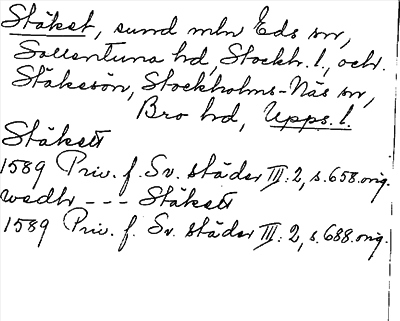 Stäket, sund mln Eds sn,
Sollentuna hd, Stockh. l., och.
Stäkesön, Stockholms-Näs sn,
Bro hd, Upps. l.
Stäkett
1589 Priv. f. Sv. städer III: 2, s. 658. orig.
wedh --- Stäkett
1589 Priv. f. Sv. städer III: 2, s. 688. orig.